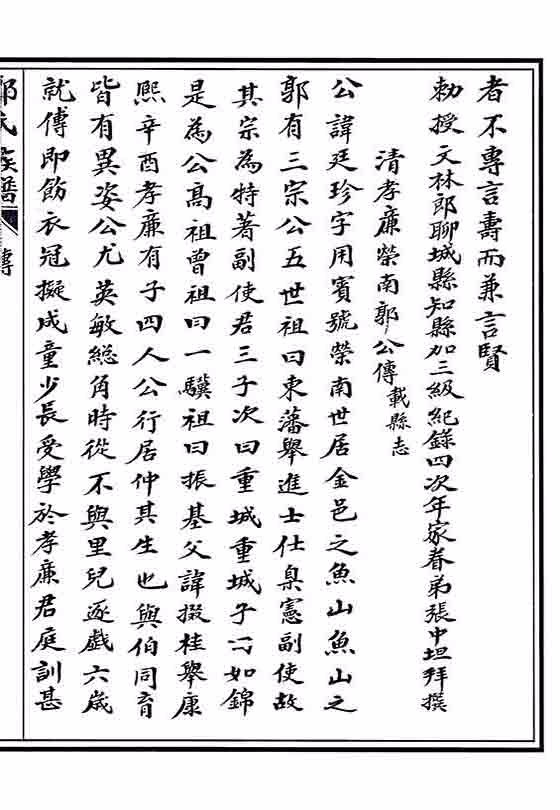 者不專言壽而兼言賢
勅授文林郎聊城縣知縣加三級紀錄四次年家眷弟張中坦拜撰
清孝廉榮南郭公傳載縣志
公諱廷珍字用賓號榮南世居金邑之魚山魚山之
郭有三宗公五世祖曰東藩舉進士仕臬憲副使故
其宗為特著副使君三子次曰重城重城子曰如錦
是為公高祖曾祖曰一驥祖曰振基父諱掇桂舉康
熙辛酉孝廉有子四人公行居仲其生也與伯同育
皆有異姿公尤英敏總角時從不與里兒逐戲六歲
就傅即飭衣冠擬成童少長受學於孝廉君庭訓甚
郭氏族譜 傳